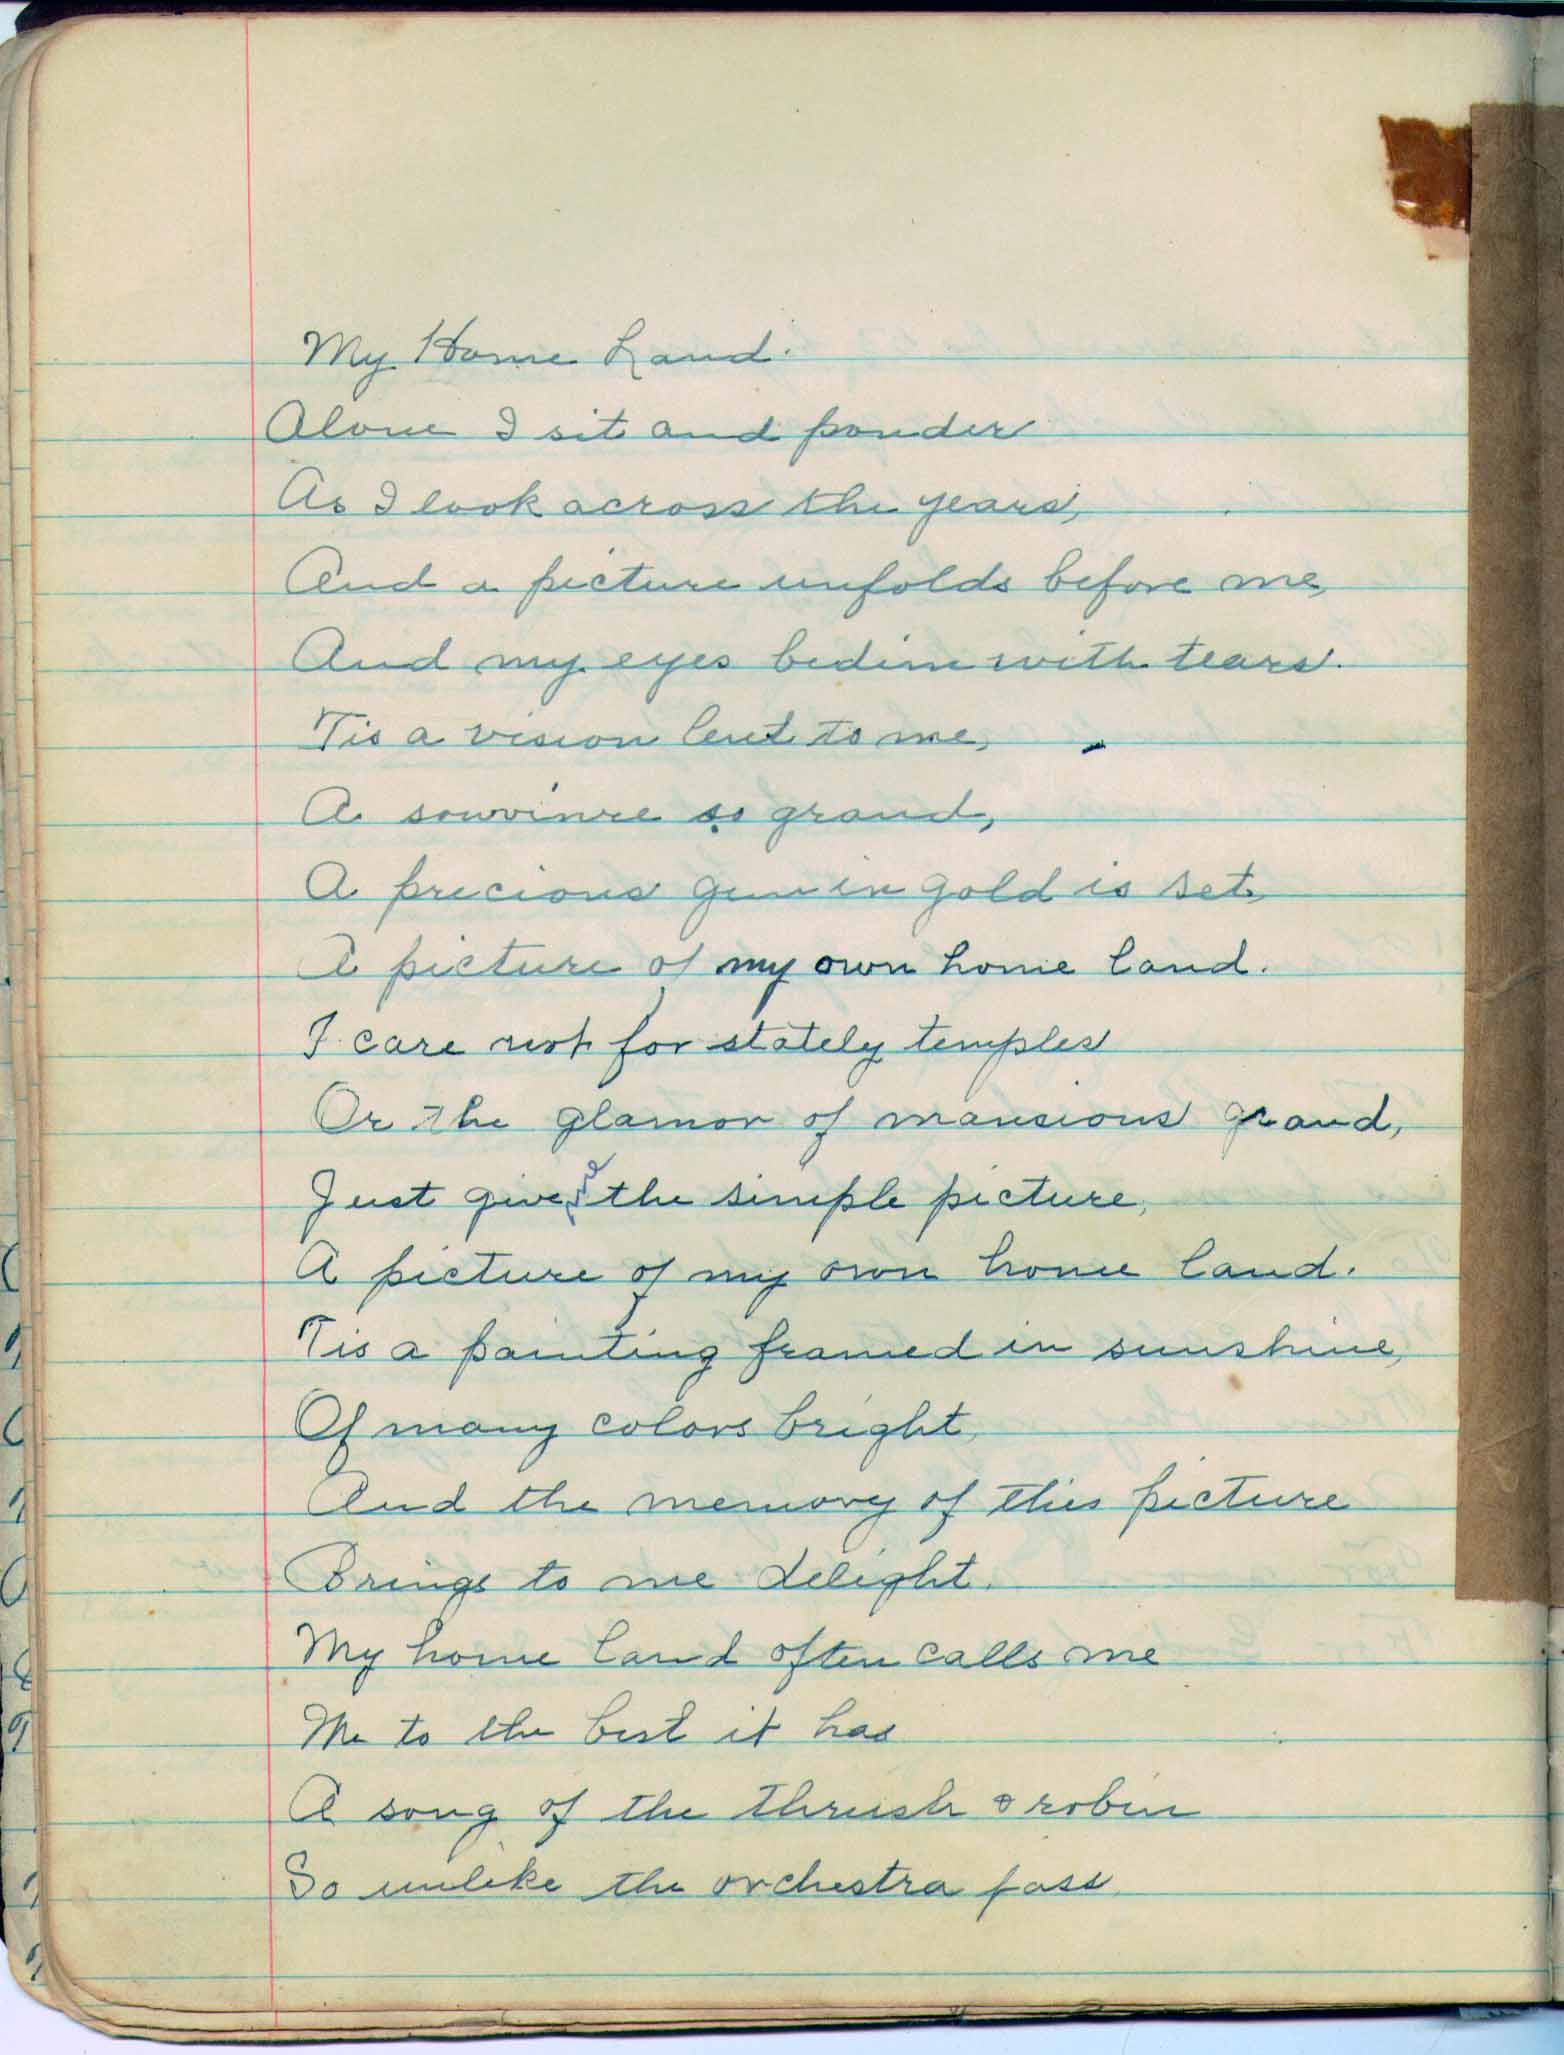 My Home Land.
Alone I sit and ponder
As I look across the years,
And a picture unfolds before me,
And my eyes bedim with tears.
Tis a vision lent to me,
A souvinre so grand,
A precious gem in gold is set,
A picture of my own home land.
I care not for stately temples
Or the glamor of mansions grand,
Just give me the simple picture,
A picture of my own home land.
Tis a painting framed in sunshine,
Of many colors bright,
And the memory of this picture
Brings to me delight.
My home land often calls me
Me to the best it has
A song of the thrush & robin
So unlike the orchestra